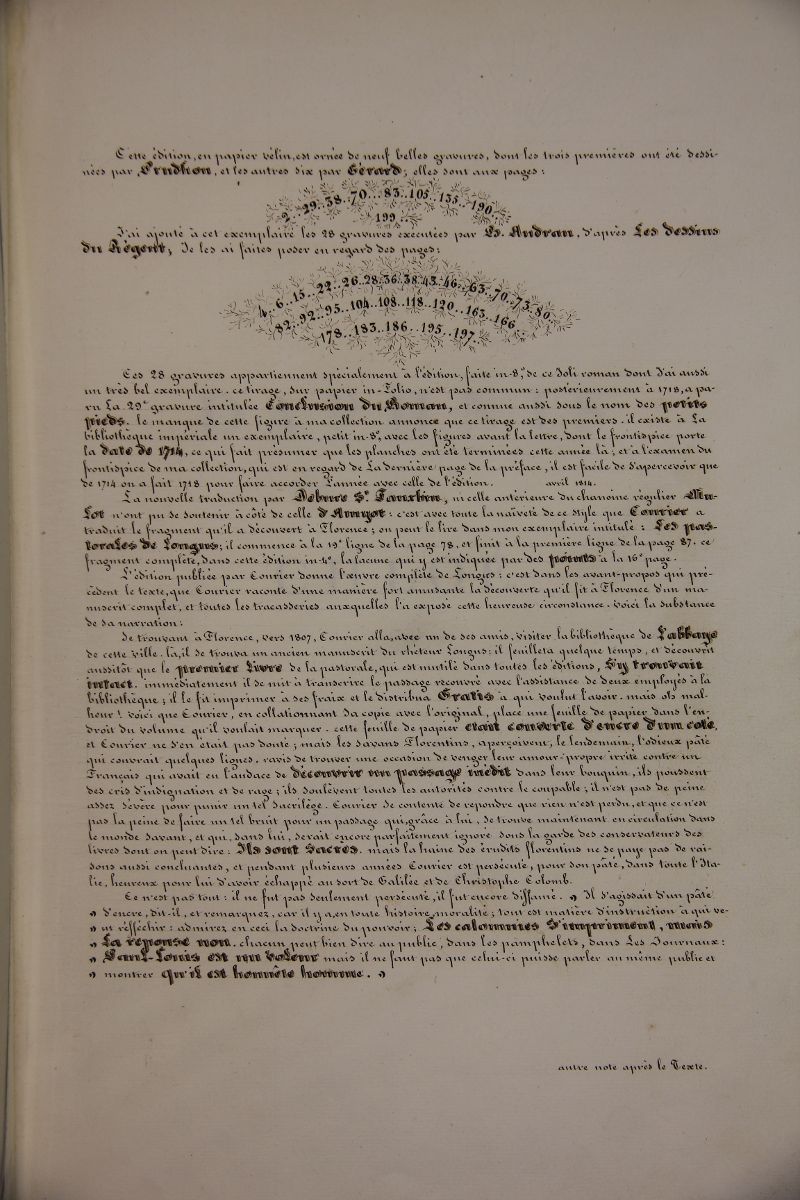 Cette édition, en papier vélin, est ornée de neuf belles gravures, dont les trois premières ont été dessi-
nées par Prudhon, et les autres six par Gérard; elles sont aux pages:
2..29..38..70...83..105..135..190.
199.
J'ai ajouté à cet exemplaire les 28 gravures exécutées par B. Audran, d'après Les dessins
du Régent; Je les ai faites poser en regard des pages:
4..6..15..22..26..28..36..38..43..46..63..70..73..80.
82..92..95..104..108..118..120..163..166.
178..183..186..195..197.
Ces 28 gravures appartiennent spécialement à l'édition, faite in-8°, de ce Joli roman dont J'ai aussi
un très bel exemplaire. ce tirage, sur papier in-folio, n'est pas commun: postérieurement à 1718, a pa-
ru La 29e gravure intitulée Conclusion du Roman, et connue aussi sous le nom des petits
pieds. le manque de cette figure à ma collection annonce que ce tirage est des premiers. il existe à La
bibliothèque impériale un exemplaire, petit in-8°, avec les figures avant la lettre, dont le frontispice porte
la date de 1714, ce qui fait présumer que les planches ont été terminées cette année là; et à l'examen du
frontispice de ma collection, qui est en regard de La dernière page de la préface, il est facile de s'apercevoir que
de 1714 on a fait 1718 pour faire accorder L'année avec celle de l'édition. avril 1814.
La nouvelle traduction par Debure St. Fauxbin, ni celle antérieure du chanoine régulier Mu-
lot n'ont pu se soutenir à côté de celle d'Amyot: c'est avec toute la naïveté de ce style que Courier a
traduit le fragment qu'il a découvert à Florence; on peut le lire dans mon exemplaire intitulé: Les pas-
torales de Longus; il commence à la 19e ligne de la page 78, et finit à la première ligne de la page 87. ce
fragment complète, dans cette édition in-4°, la lacune qui y est indiquée par des points à la 16e page.
L'édition publiée par Courier donne l'œuvre complète de Longus: c'est dans les avant-propos qui pré-
cèdent le texte, que Courier raconte d'une manière fort amusante la découverte qu'il fit à Florence d'un ma-
nuscrit complet, et toutes les tracasseries auxquelles l'a exposé cette heureuse circonstance. voici la substance
de sa narration:
Se trouvant à Florence, vers 1807, Courier alla, avec un de ses amis, visiter la bibliothèque de L'abbaye
de cette ville. là, il se trouva un ancien manuscrit du rhéteur Longus: il feuilleta quelque temps, et découvrit
aussitôt que le premier livre de la pastorale, qui est mutilé dans toutes les éditions, s'y trouvait
intact. immédiatement il se mit à transcrire le passage recouvré avec l'assistance de deux employés à la
bibliothèque; il le fit imprimer à ses fraix et le distribua Gratis à qui voulut l'avoir. mais oh mal-
heur! voici que Courier, en collationnant sa copie avec l'original, place une feuille de papier dans l'en-
droit du volume qu'il voulait marquer. cette feuille de papier était couverte d'encre d'un coté,
et Courier ne s'en était pas douté; mais les savans Florentins, aperçoivent, le lendemain, l'odieux pâté
qui couvrait quelques lignes. ravis de trouver une occasion de venger leur amour-propre irrité contre un
Français qui avait eu l'audace de découvrir un passage inédit dans leur bouquin, ils poussent
des cris d'indignation et de rage; ils soulèvent toutes les autorités contre le coupable; il n'est pas de peine
assez sévère pour punir un tel sacrilège. Courier se contente de répondre que rien n'est perdu, et que ce n'est
pas la peine de faire un tel bruit pour un passage qui, grâce à lui, se trouve maintenant en circulation dans
le monde savant, et qui, sans lui, serait encore parfaitement ignoré sous la garde des conservateurs des
livres dont on peut dire: Ils sont Sacrés. mais la haine des érudits florentins ne se paye pas de rai-
sons aussi concluantes, et pendant plusieurs années Courier est persécuté, pour son pâté, dans toute l'Ita-
lie, heureux pour lui d'avoir échappé au sort de Galilée et de Christophe Colomb.
Ce n'est pas tout: il ne fut pas seulement persécuté, il fut encore diffamé. » Il s'agissait d'un pâté
» d'encre, dit-il, et remarquez, car il y a, en toute histoire, moralité; tout est matière d'instruction à qui ve-
» ut réfléchir: admirez en ceci la doctrine du pouvoir; Les calomnies s'impriment, mais
» La réponse non. chacun peut bien dire au public, dans les pamphlets, dans Les Journaux:
» Paul-Louis est un voleur mais il ne faut pas que celui-ci puisse parler au même public et
» montrer qu'il est honnête homme. »
autre note après le Texte.